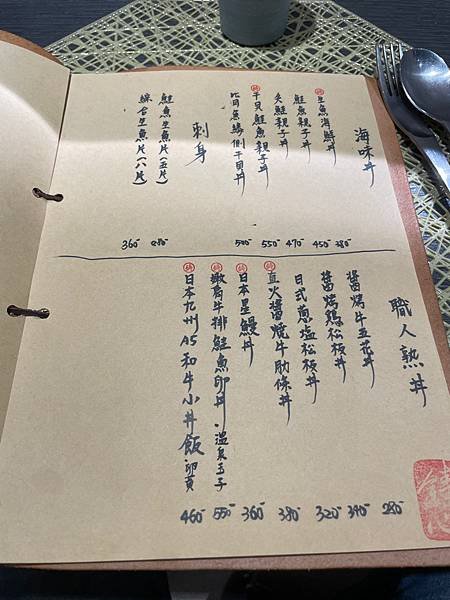 海味丼
特 生魚海鮮丼 380
鮭魚親子丼 450
炙鮭親子丼 470
特 干貝鮭魚親子丼 550
比目魚緣側干貝丼 500
刺身
鮭魚生魚片(五片) 280
綜合生魚片(八片) 360
職人熟丼
醬烤牛五花丼 280
醬烤雞松板丼 340
日式蔥塩松板丼 320
特 直火醬燒牛肋條丼 380
特 日本星鰻丼 360
特 嫩肩牛排鮭魚卵丼.溫泉玉子 550
特 日本九州A5和牛小丼飯.卵黃 460